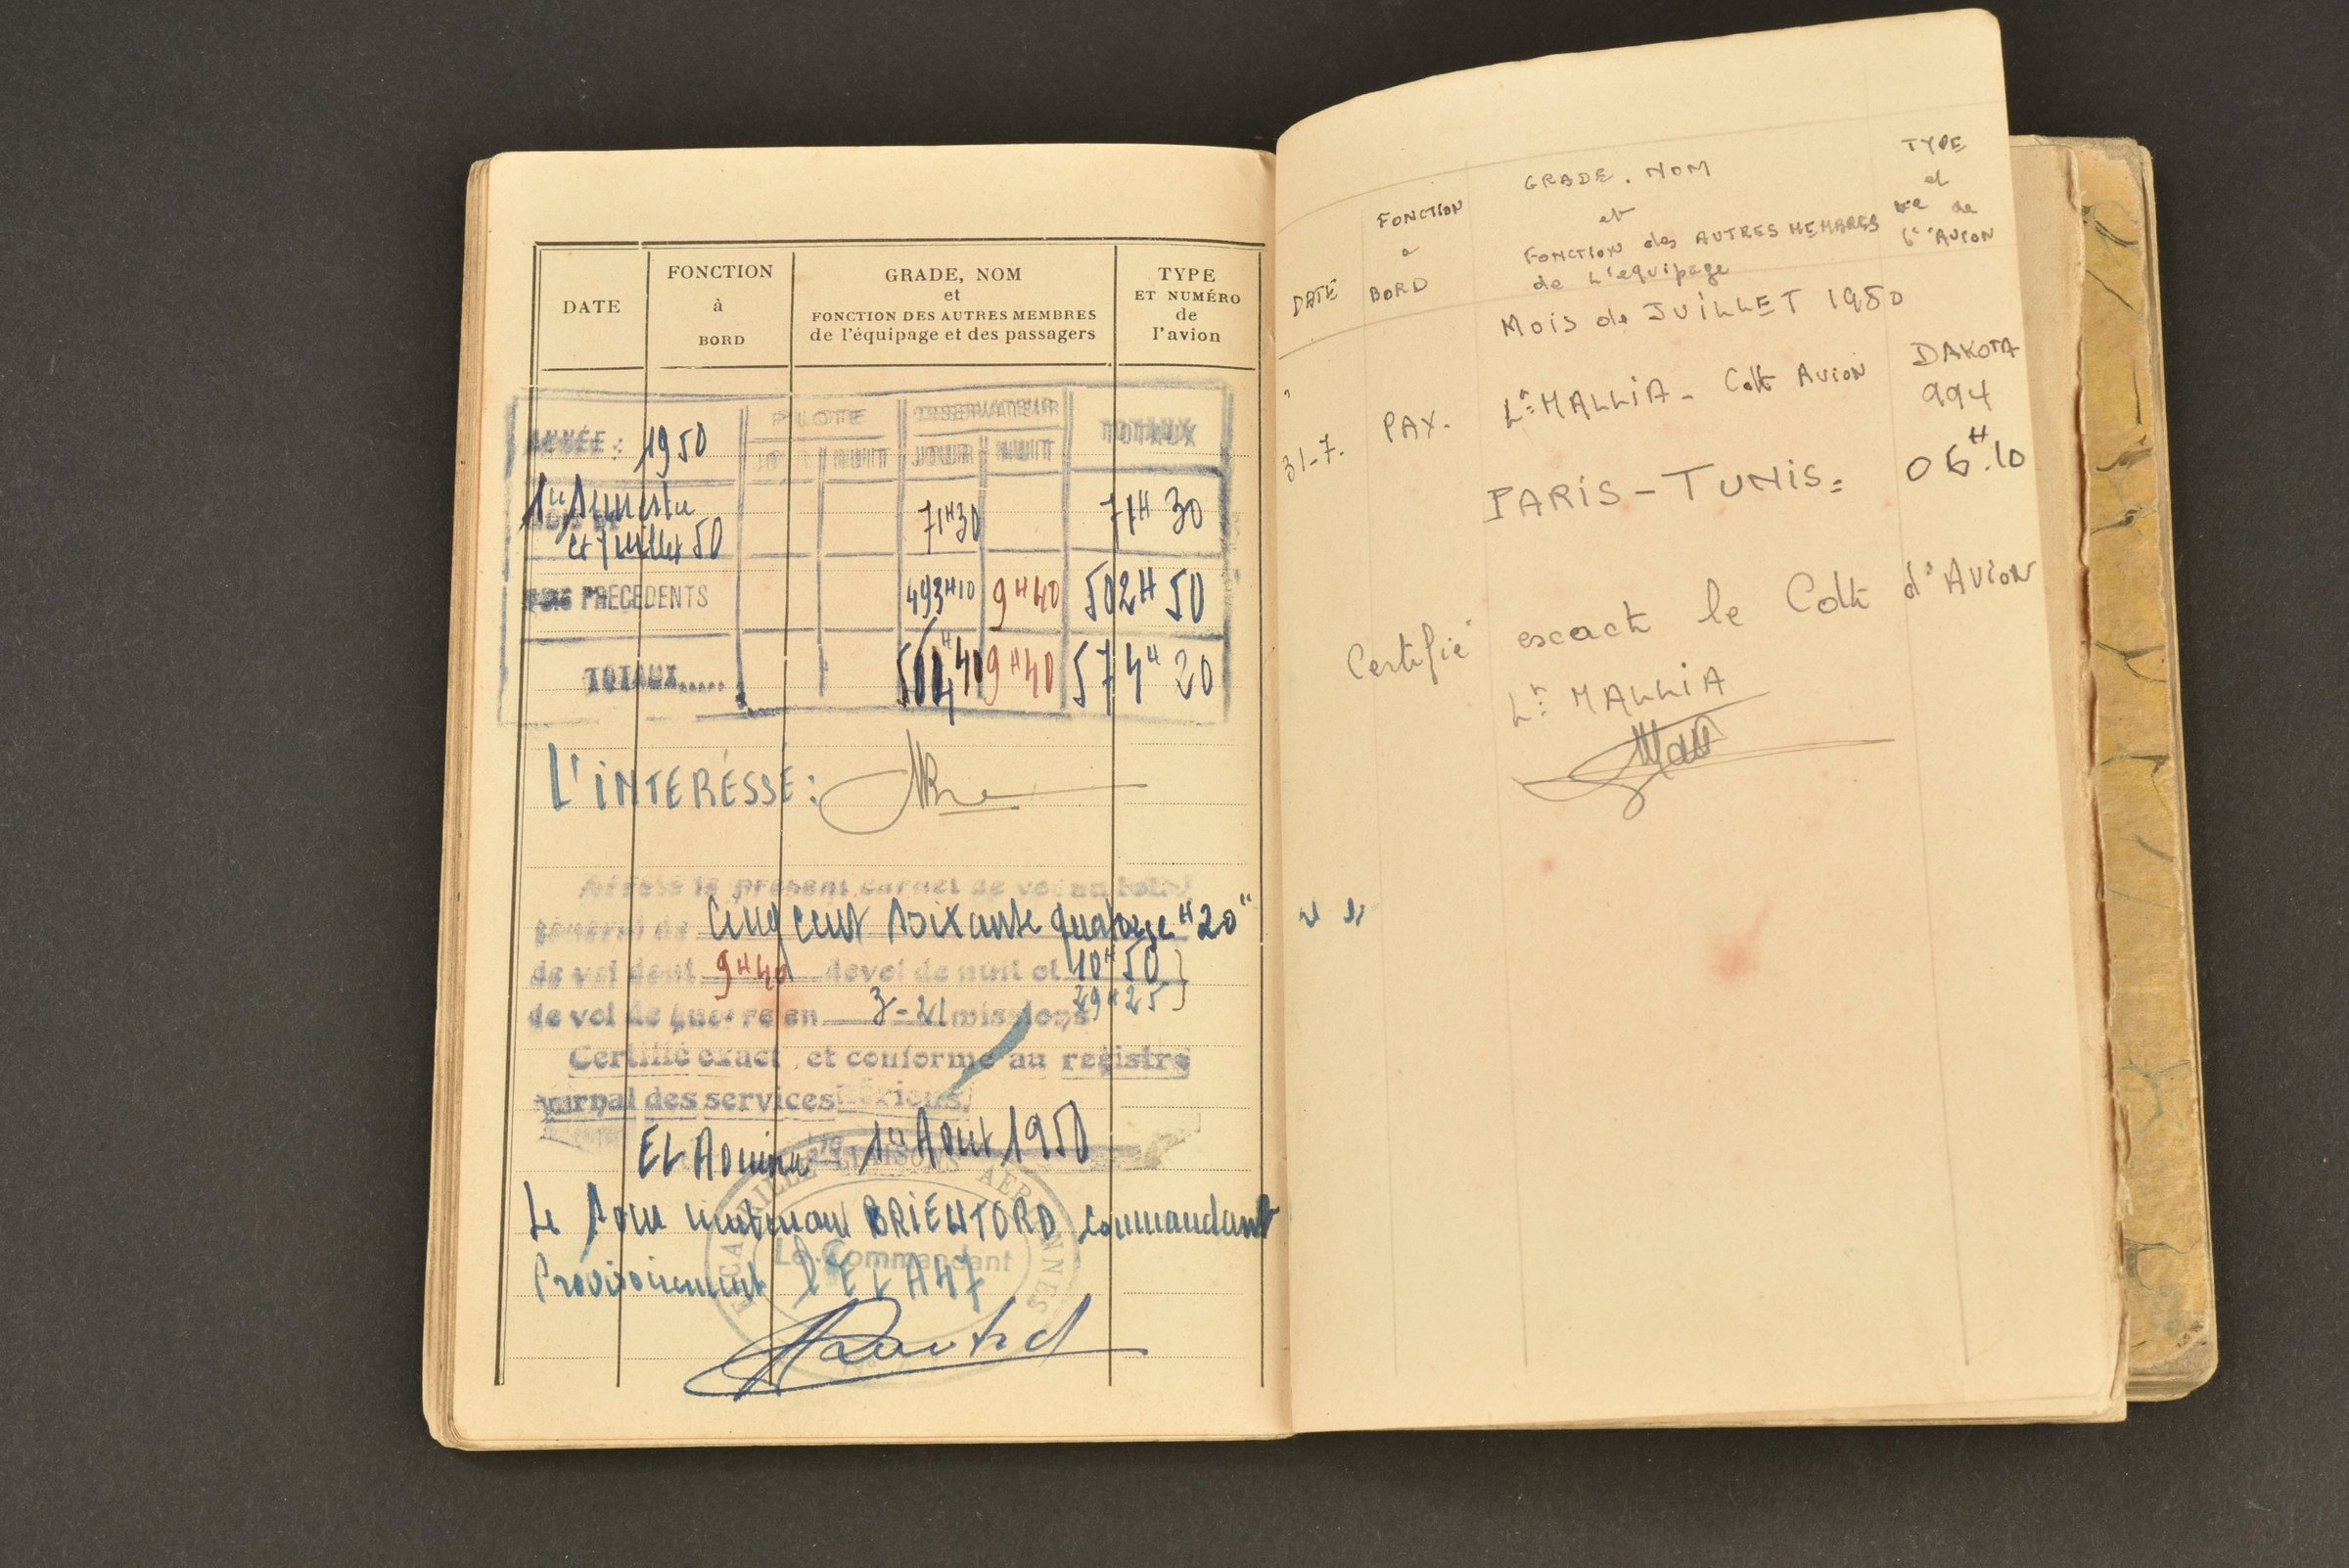 DATE
FONCTION
à
BORD
GRADE, NOM
et
FONCTION DES AUTRES MEMBRES
de l'équipage et des passagers
TYPE
ET NUMÉRO
de
l'avion
ANNÉE : 1950
PILOTE
OBSERVATEUR
TOTAUX
JOUR NUIT JOUR NUIT
1er Semestre
et Juillet 50
71H30 71H 30
PRÉCÉDENTS 493H10 9H40 502H 50
TOTAUX..... 564H40 9H40 574H 20
L'INTERÉSSÉ :
Arrêté le présent carnet de vol au total
général de Cinq cent soixante quatorze "H 20"
de vol dont 9H40 de vol de nuit et 10H50
29H25
de vol de guerre en 3-21 missions
Certifié exact, et conforme au registre
journal des services aériens
EL Aouina 1er Aout 1950
ESCADRILLE LIAISONS AÉRIENNES
Le Commandant
Le Sous lieutenant commandant
Provisoirement l'ELA 47
DATE
FONCTION
a
BORD
GRADE. NOM
et
FONCTION des AUTRES MEMBRES
de L'equipage
TYPE
et
de
l'AVION
MOIS de JUILLET 1950
31-7. PAX. Lt MALLIA - Cdt AVION DAKOTA
994
PARIS - TUNIS = 06H.10
Certifié escact le Cdt d'AVION
Lt MALLIA